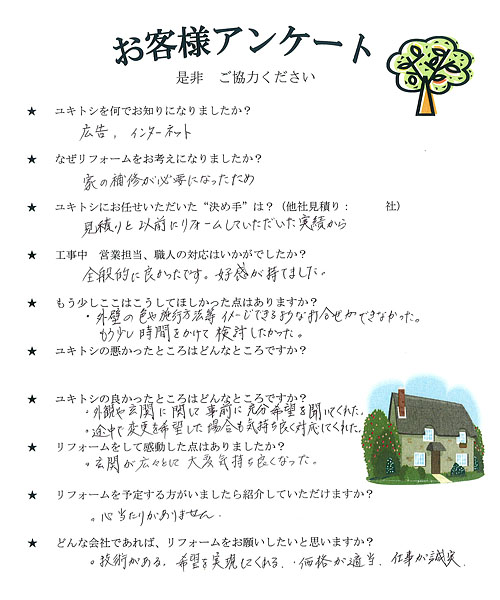 お客様アンケート
是非 ご協力ください
★ ユキトシを何でお知りになりましたか?
広告, インターネット
★ なぜリフォームをお考えになりましたか?
家の補修が必要になったため
★ ユキトシにお任せいただいた“決め手”は?(他社見積り: 社)
見積りと以前にリフォームしていただいた実績から
★ 工事中 営業担当、職人の対応はいかがでしたか?
全般的に良かったです。好感が持てました。
★ もう少しここはこうしてほしかった点はありますか?
・外壁の色や施行方法等イメージできるようなお合せができなかった。
もう少し時間をかけて検討したかった。
★ ユキトシの悪かったところはどんなところですか?
★ ユキトシの良かったところはどんなところですか?
・外観や玄関に関して事前に充分希望を聞いてくれた。
・途中で変更を希望した場合も気持ち良く対応してくれた。
★ リフォームをして感動した点はありましたか?
・玄関が広々として大変気持ち良くなった。
★ リフォームを予定する方がいましたら紹介していただけますか?
。心当たりがありません.
★ どんな会社であれば、リフォームをお願いしたいと思いますか?
。技術がある, 希望を実現してくれる, ・価格が適当, 仕事が誠実.